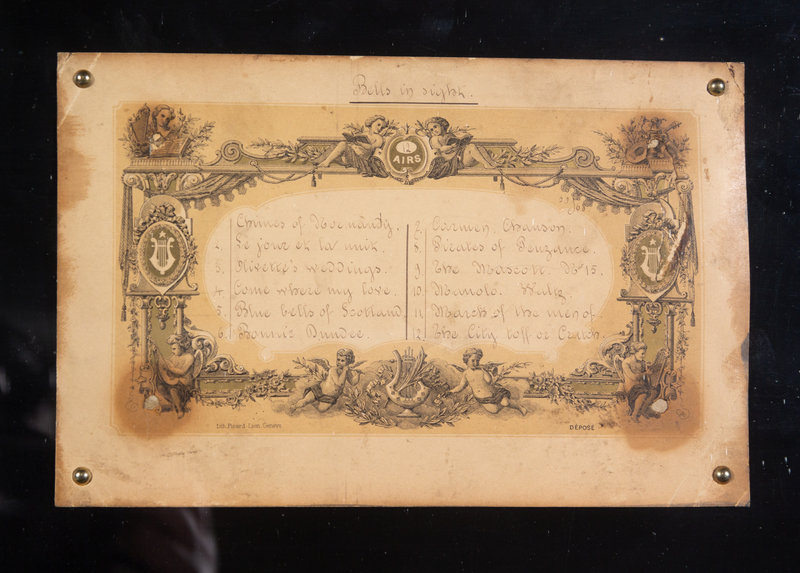 Bells in sight.
12
AIRS
Chimes of Normandy.
2. Le jour et la nuit
3. Olivette's weddings.
4 Come where my love.
5. Blue bells of Scotland
6. Bonnie Dundee.
7. Carmen. Chanson.
8. Pirates of Penzance.
9 The Mascott. No 15.
10 Manolo. Waltz.
11 March of the men of.
12 The City toff or Crutch.
Lith. Picard-Lion, Genève
DÉPOSÉ